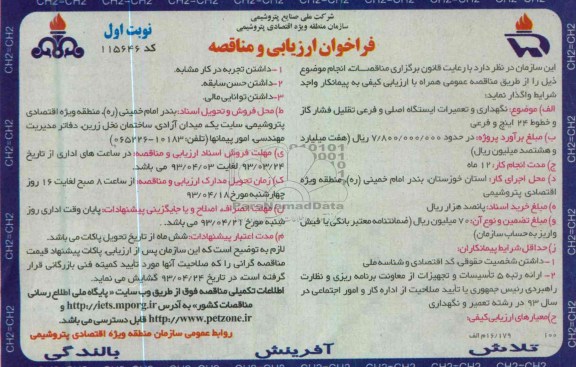 شرکت ملی صنایع پتروشیمی
سازمان منطقه ویژه اقتصادی پتروشیمی
فراخوان ارزیابی و مناقصه
نوبت اول
کد ۱۱۵۶۴۶
این سازمان در نظر دارد با رعایت قانون برگزاری مناقصات، انجام موضوع
ذیل را از طریق مناقصه عمومی همراه با ارزیابی کیفی به پیمانکار واجد
شرایط واگذار نماید:
الف) موضوع: نگهداری و تعمیرات ایستگاه اصلی و فرعی تقلیل فشار گاز
و خطوط ۲۴ اینچ و فرعی
ب) مبلغ برآورد پروژه: در حدود ۷/۸۰۰/۰۰۰/۰۰۰ ریال (هفت میلیارد
و هشتصد میلیون ریال)
ج) مدت انجام کار: ۱۲ ماه
د) محل اجرای کار: استان خوزستان، بندر امام خمینی (ره)، منطقه ویژه
اقتصادی پتروشیمی
ه) مبلغ خرید اسناد: پانصد هزار ریال
و) مبلغ تضمین و نوع آن: ۷۰ میلیون ریال (ضمانتنامه معتبر بانکی یا فیش
واریز به حساب سازمان)
ز) حداقل شرایط پیمانکاران:
۱- داشتن شخصیت حقوقی، کد اقتصادی و شناسه ملی
۲- ارائه رتبه ۵ تأسیسات و تجهیزات از معاونت برنامه ریزی و نظارت
راهبردی رئیس جمهوری یا تأیید صلاحیت از اداره کار و امور اجتماعی در
سال ۹۳ در رشته تعمیر و نگهداری
ح) معیارهای ارزیابی کیفی:
۱- داشتن تجربه در کار مشابه.
۲- داشتن حسن سابقه.
۳- داشتن توانایی مالی.
ط) محل فروش و تحویل اسناد: بندر امام خمینی (ره)، منطقه ویژه اقتصادی
پتروشیمی، سایت یک، میدان آزادی، ساختمان نخل زرین، دفاتر مدیریت
مهندسی، امور پیمانها (تلفن: ۱۰۱۸۳-۰۶۵۲۲۶)
ی) مهلت فروش اسناد ارزیابی و مناقصه: در ساعت های اداری از تاریخ
۹۳/۰۳/۲۴ لغایت ۹۳/۰۴/۰۳ می باشد.
ک) زمان تحویل مدارک ارزیابی و مناقصه: از ساعت ۸ صبح لغایت ۱۶ روز
چهارشنبه مورخ ۹۳/۰۴/۱۸
ل) مهلت انصراف، اصلاح و یا جایگزینی پیشنهادات: پایان وقت اداری روز
شنبه مورخ ۹۳/۰۴/۲۱ می باشد.
م) مدت اعتبار پیشنهادات: شش ماه از تاریخ تحویل پاکات می باشد.
لازم به توضیح است که این سازمان پس از ارزیابی، پاکات پیشنهاد قیمت
مناقصه گرانی را که صلاحیت آنها مورد تأیید کمیته فنی بازرگانی قرار
گرفته است، در تاریخ ۹۳/۰۴/۲۴ گشایش می نماید.
اطلاعات تکمیلی مناقصه فوق از طریق وب سایت « پایگاه ملی اطلاع رسانی
مناقصات کشور» به آدرس http://iets.mporg.ir و
http://www.petzone.ir قابل دسترسی می باشد.
روابط عمومی سازمان منطقه ویژه اقتصادی پتروشیمی
۱۰۰ ۱۶/۱۷۹/م الف
تلاش آفرینش بالندگی
CH2=CH2